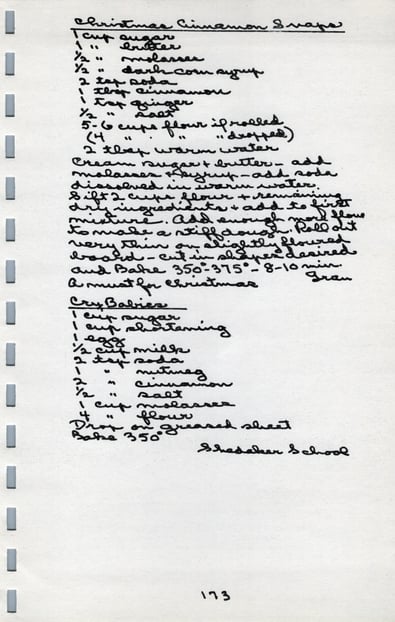 Christmas Cinnamon Snaps
1 cup sugar
1 " butter
1/2 " molasses
1/2 " dark corn syrup
2 tsp soda
1 tbsp cinnamon
1 tsp ginger
1/2 " salt
5-6 cups flour if rolled
(4 " " " dropped)
2 tbsp warm water
Cream sugar + butter - add
molasses & syrup - add soda
dissolved in warm water.
Sift 2 cups flour + remaining
dry ingredients + add to first
mixture. Add enough more flour
to make a stiff dough. Roll out
very thin on slightly floured
board - cut in shapes desired
and Bake 350°-375° - 8-10 min
A must for Christmas Gran
Cry Babies
1 cup sugar
1 cup shortening
1 egg
1/2 cup milk
2 tsp soda
1 " nutmeg
2 " cinnamon
1/2 " salt
1 cup molasses
4 " flour
Drop on greased sheet
Bake 350°
School
173